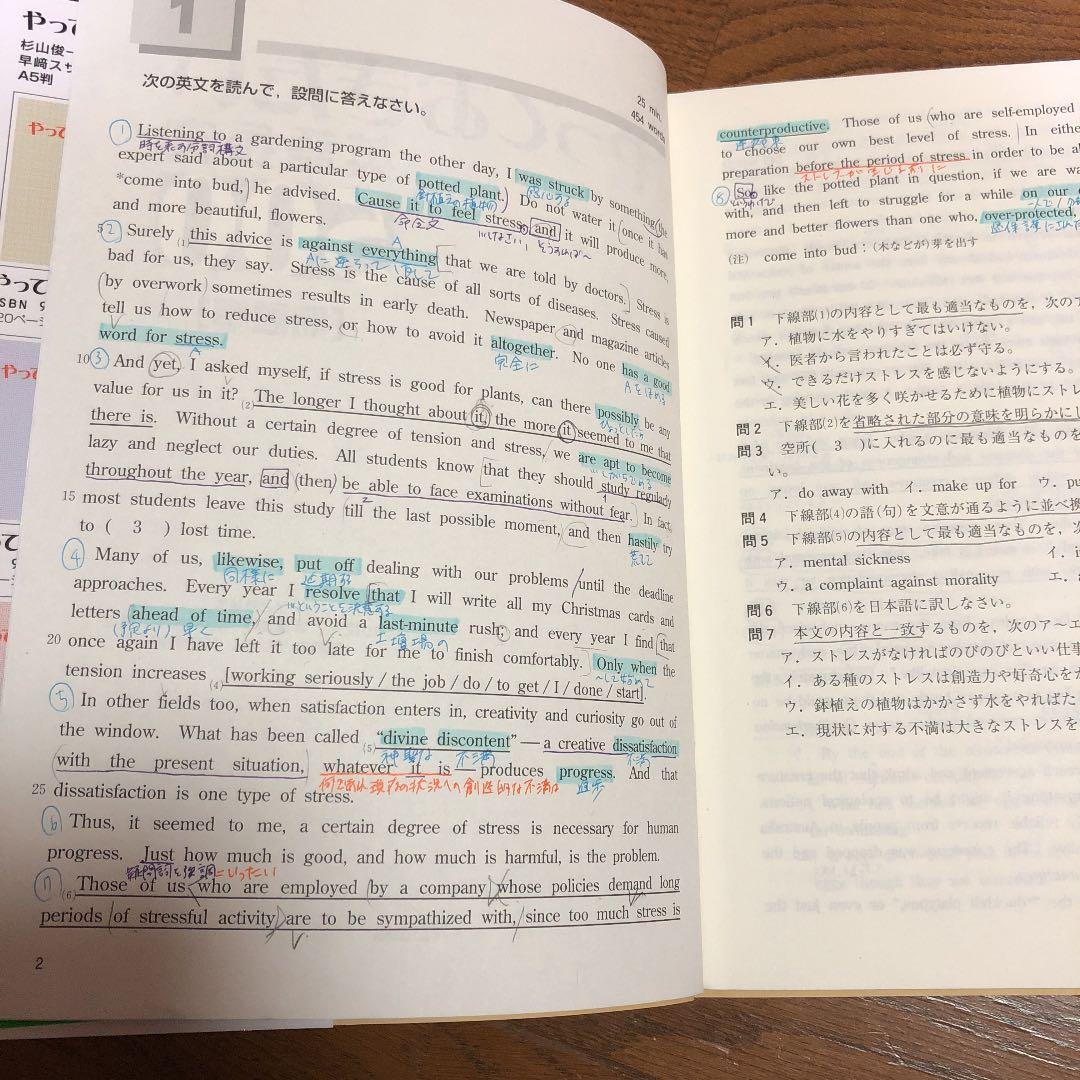 やって
杉山俊一
早﨑スザ
A5判
やって
やって
ISBN 9
20ペー
やって
1
次の英文を読んで，設問に答えなさい。
25 min.
454 words
① Listening to a gardening program the other day, I was struck by something the
時を表の分詞構文
expert said about a particular type of potted plant. Do not water it once it has
*come into bud, he advised. Cause it to feel stress, and it will produce more,
命令文
and more beautiful, flowers.
② Surely (1) this advice is against everything that we are told by doctors. Stress is
bad for us, they say. Stress is the cause of all sorts of diseases. Stress caused
by overwork sometimes results in early death. Newspaper and magazine articles
tell us how to reduce stress, or how to avoid it altogether. No one has a good
完全に
Aをほめる
word for stress.
10 ③ And yet, I asked myself, if stress is good for plants, can there possibly be any
value for us in it? (2) The longer I thought about it, the more it seemed to me that
there is. Without a certain degree of tension and stress, we are apt to become
lazy and neglect our duties. All students know that they should study regularly
throughout the year, and (then) be able to face examinations without fear. In fact,
15 most students leave this study till the last possible moment, and then hastily try
慌てて
to ( 3 ) lost time.
④ Many of us, likewise, put off dealing with our problems until the deadline
同様に 延期する
approaches. Every year I resolve that I will write all my Christmas cards and
…ということを決意する
letters ahead of time, and avoid a last-minute rush; and every year I find that
(予定より) 早く 土壇場の
20 once again I have left it too late for me to finish comfortably. Only when the
～して初めて
tension increases (4) [working seriously / the job / do / to get / I / done / start].
⑤ In other fields too, when satisfaction enters in, creativity and curiosity go out of
the window. What has been called (5) “divine discontent” — a creative dissatisfaction
神聖な 不満 不満
with the present situation, whatever it is — produces progress. And that
何であれ現在の状況への創造的な不満は 進歩
25 dissatisfaction is one type of stress.
⑥ Thus, it seemed to me, a certain degree of stress is necessary for human
progress. Just how much is good, and how much is harmful, is the problem.
疑問詞を強調=いったい
⑦ (6) Those of us who are employed by a company whose policies demand long
periods of stressful activity are to be sympathized with, since too much stress is
2
counterproductive. Those of us who are self-employed
逆効果
to choose our own best level of stress. In either
preparation before the period of stress in order to be a
ストレスが生じる前に
⑧ So, like the potted plant in question, if we are wa
with, and then left to struggle for a while on our o
more and better flowers than one who, over-protected,
(注) come into bud：(木などが) 芽を出す
問1 下線部(1)の内容として最も適当なものを，次のア
ア．植物に水をやりすぎてはいけない。
イ．医者から言われたことは必ず守る。
ウ．できるだけストレスを感じないようにする。
エ．美しい花を多く咲かせるために植物にスト
問2 下線部(2)を省略された部分の意味を明らかにし
問3 空所( 3 )に入れるのに最も適当なものを
い。
ア．do away with イ．make up for ウ．pu
問4 下線部(4)の語(句)を文意が通るように並べ換
問5 下線部(5)の内容として最も適当なものを，次
ア．mental sickness イ．i
ウ．a complaint against morality エ．a
問6 下線部(6)を日本語に訳しなさい。
問7 本文の内容と一致するものを，次のア～エ
ア．ストレスがなければのびのびといい仕事
イ．ある種のストレスは創造力や好奇心をか
ウ．鉢植えの植物はかかさず水をやればた
エ．現状に対する不満は大きなストレスを